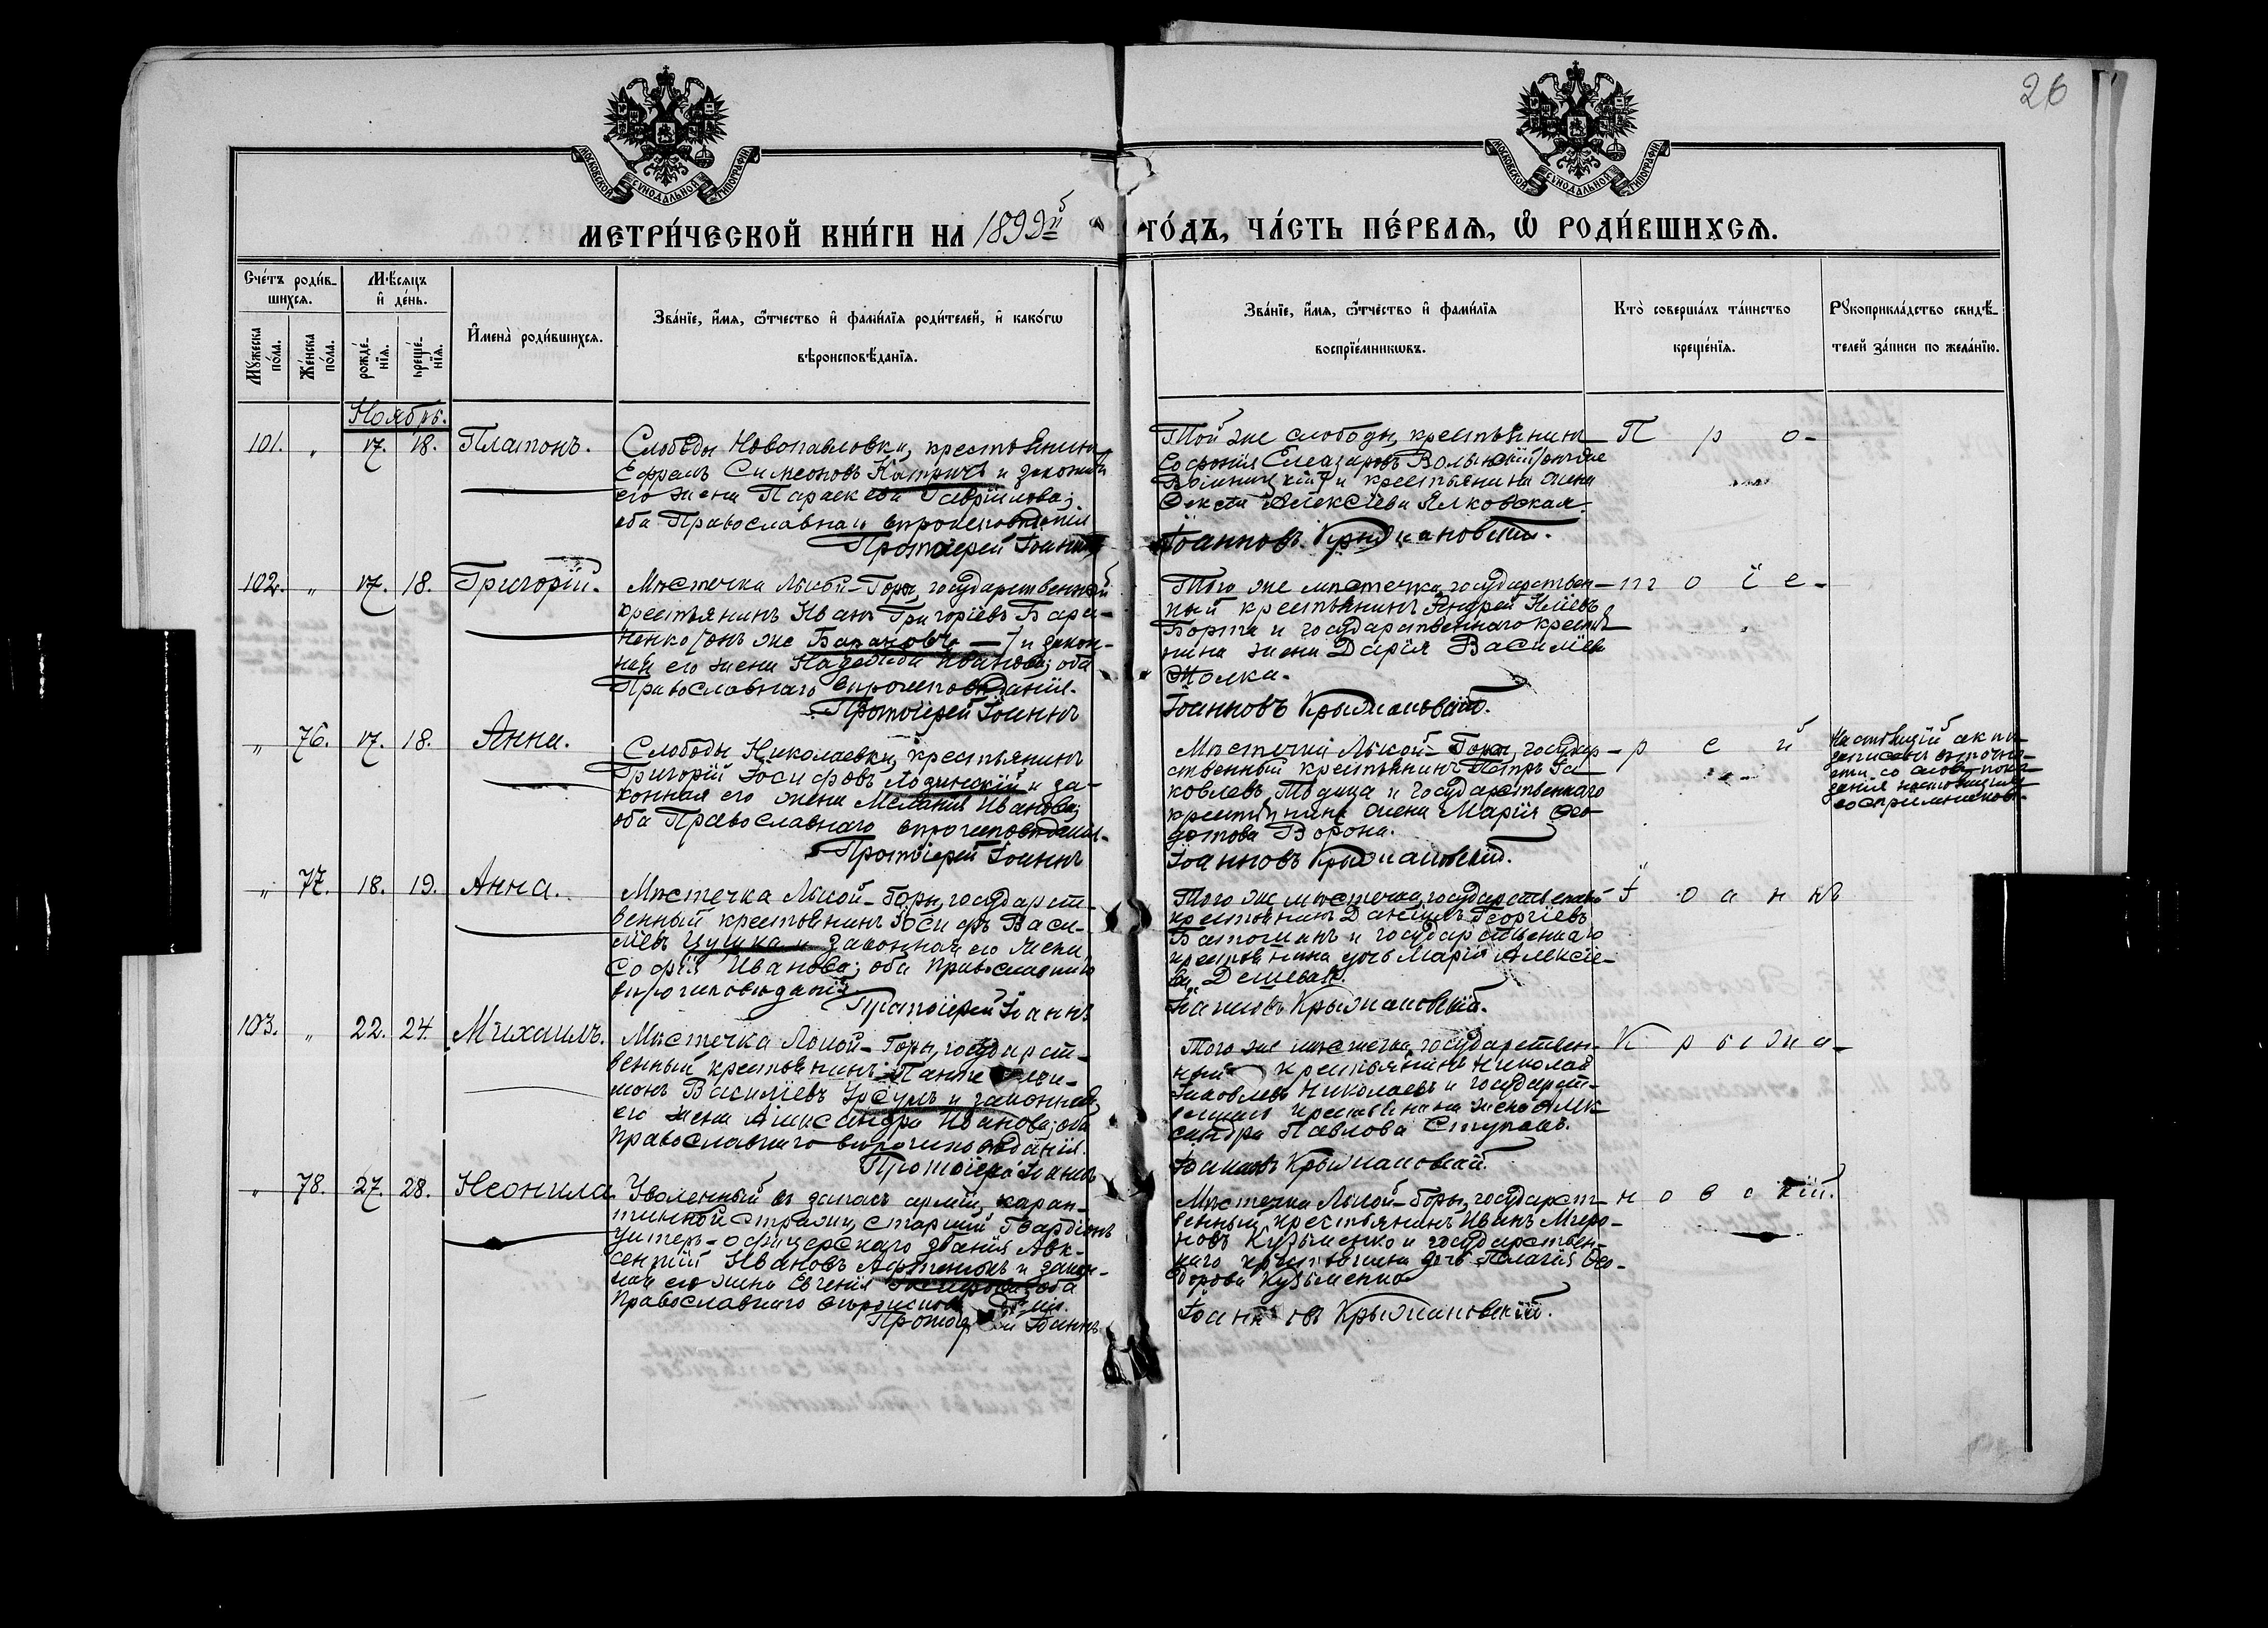 26
МОСКОВСКОЙ СѴНОДАЛЬНОЙ ТИПОГРАФІИ
МОСКОВСКОЙ СѴНОДАЛЬНОЙ ТИПОГРАФІИ
МЕТРИ́ЧЕСКОЙ КНИ́ГИ НА 1899й
ГО́ДЪ, ЧА́СТЬ ПЕ́РВАѦ, Ѽ РОДИ́ВШИХСѦ.
Сче́тъ роди́в-
шихсѧ.
Мꙋ́жеска по́ла.
Же́нска по́ла.
Мѣ́сѧцъ и҆ де́нь.
рожде́-нїѧ.
креще́-нїѧ.
И҆мена̀ роди́вшихсѧ.
Зва́нїе, и҆́мѧ, ѻ҆́тчество и҆ фами́лїѧ роди́телей, и҆ како́гѡ
вѣроисповѣ́данїѧ.
Зва́нїе, и҆́мѧ, ѻ҆́тчество и҆ фами́лїѧ
воспрїе́мникѡвъ.
Кто̀ соверша́лъ та́инство
креще́нїѧ.
Рꙋкоприкла́дство свидѣ́-
телей за́писи по жела́нїю.
Ноябрь.
101. „ 17. 18. Платонъ.
Слободы Новопавловки, крестьянинъ
Ефремъ Симеоновъ и законная
его жена Параскева Гавріилова;
оба Православнаго вѣроисповѣданія
Протоіерей Іоаннъ
Той же слободы, крестьянинъ
Софонія Елеазаровъ /онъ же
и крестьянина жена
Алексіева Ялковская
Іоанновъ Крыжановскій.
П р о-
102. „ 17. 18. Григорій.
Мѣстечка Лысой-Горы, государственный
крестьянинъ Иванъ Григоріевъ Бара-
ненко /онъ же Барановъ — / и закон-
ная его жена Надежда Иванова; оба
Православнаго вѣроисповѣданія.
Протоіерей Іоаннъ
Того же мѣстечка, государствен-
ный крестьянинъ Андрей Иліевъ
Борта и государственнаго кресть-
янина жена Дарія Василіева
Жолка.
Іоанновъ Крыжановскій.
т о і е-
„ 76. 17. 18. Анна.
Слободы Николаевки, крестьянинъ
Григорій Іосифовъ Лозинскій и за-
конная его жена Меланія Иванова;
оба Православнаго вѣроисповѣданія.
Протоіерей Іоаннъ
Мѣстечка Лысой-Горы, государ-
ственный крестьянинъ Петръ Іа-
ковлевъ и государственнаго
крестьянина жена Марія Ѳео-
дотова Ворона.
Іоанновъ Крыжановскій.
р е й
Настоящій актъ
записанъ
со словъ пока-
занія
воспріемниковъ.
„ 77. 18. 19. Анна.
Мѣстечка Лысой-Горы, государст-
венный крестьянинъ Іосифъ Васи-
ліевъ Цушка и законная его жена
Софія Иванова; оба Православнаго
вѣроисповѣданія.
Протоіерей Іоаннъ
Того же мѣстечка, государственный
крестьянинъ Даніилъ Георгіевъ
Батоманъ и государственнаго
крестьянина дочь Марія Алексіе-
ва
Іоанновъ Крыжановскій.
І о а н н ъ
103. „ 22. 24. Михаилъ.
Мѣстечка Лысой-Горы, государст-
венный крестьянинъ Пантелеи-
монъ Василіевъ Урсулъ и законная
его жена Александра Иванова; оба
Православнаго вѣроисповѣданія.
Протоіерей Іоаннъ
Того же мѣстечка, государствен-
ный крестьянинъ Николай
Іаковлевъ Николаевъ и государст-
веннаго крестьянина жена Алек-
сандра Павлова
Іоанновъ Крыжановскій.
К р ы ж а-
„ 78. 27. 28. Неонила.
Уволенный въ запасъ арміи, каран-
тинной стражи, старшій Гвардіонъ
унтеръ-офицерскаго званія Авк-
сентій Ивановъ и закон-
ная его жена Евгенія Іосифова; оба
Православнаго вѣроисповѣданія.
Протоіерей Іоаннъ
Мѣстечка Лысой-Горы, государст-
венный крестьянинъ Иванъ Миро-
новъ Кузьменко и государствен-
наго крестьянина дочь Пелагія Ѳео-
дорова Кузьменко
Іоанновъ Крыжановскій.
н о в с кій.